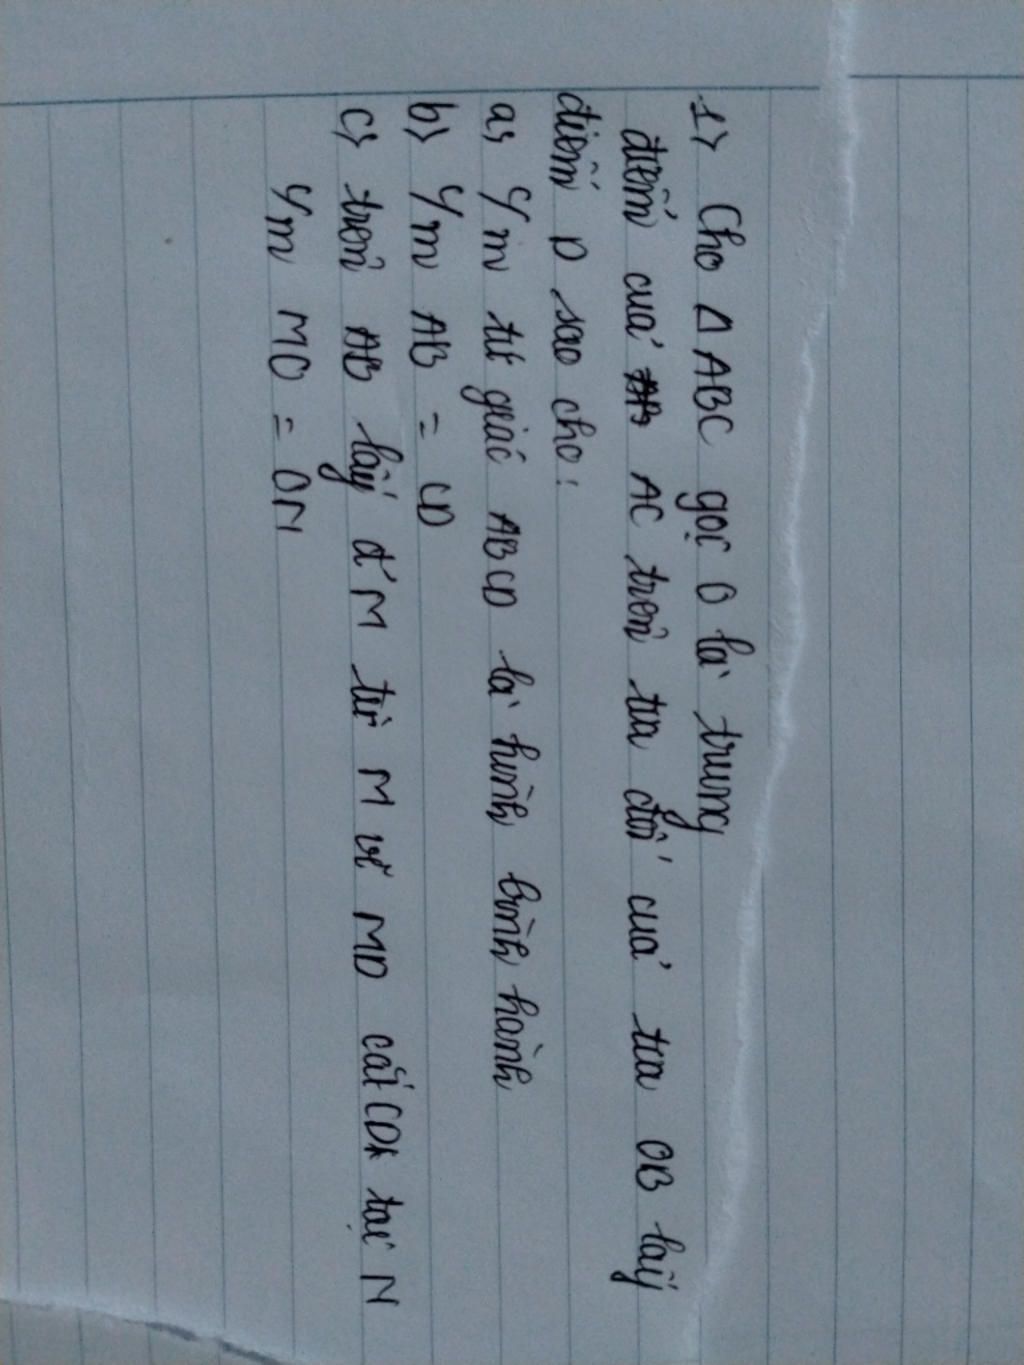 1> Cho Δ ABC gọi O là trung
điểm của AC trên tia đối của tia OB lấy
điểm D sao cho:
a> C/m tứ giác ABCD là hình bình hành
b> C/m AB = CD
c> trên AB lấy đ' M từ M vẽ MO cắt CD tại N
C/m MO = ON